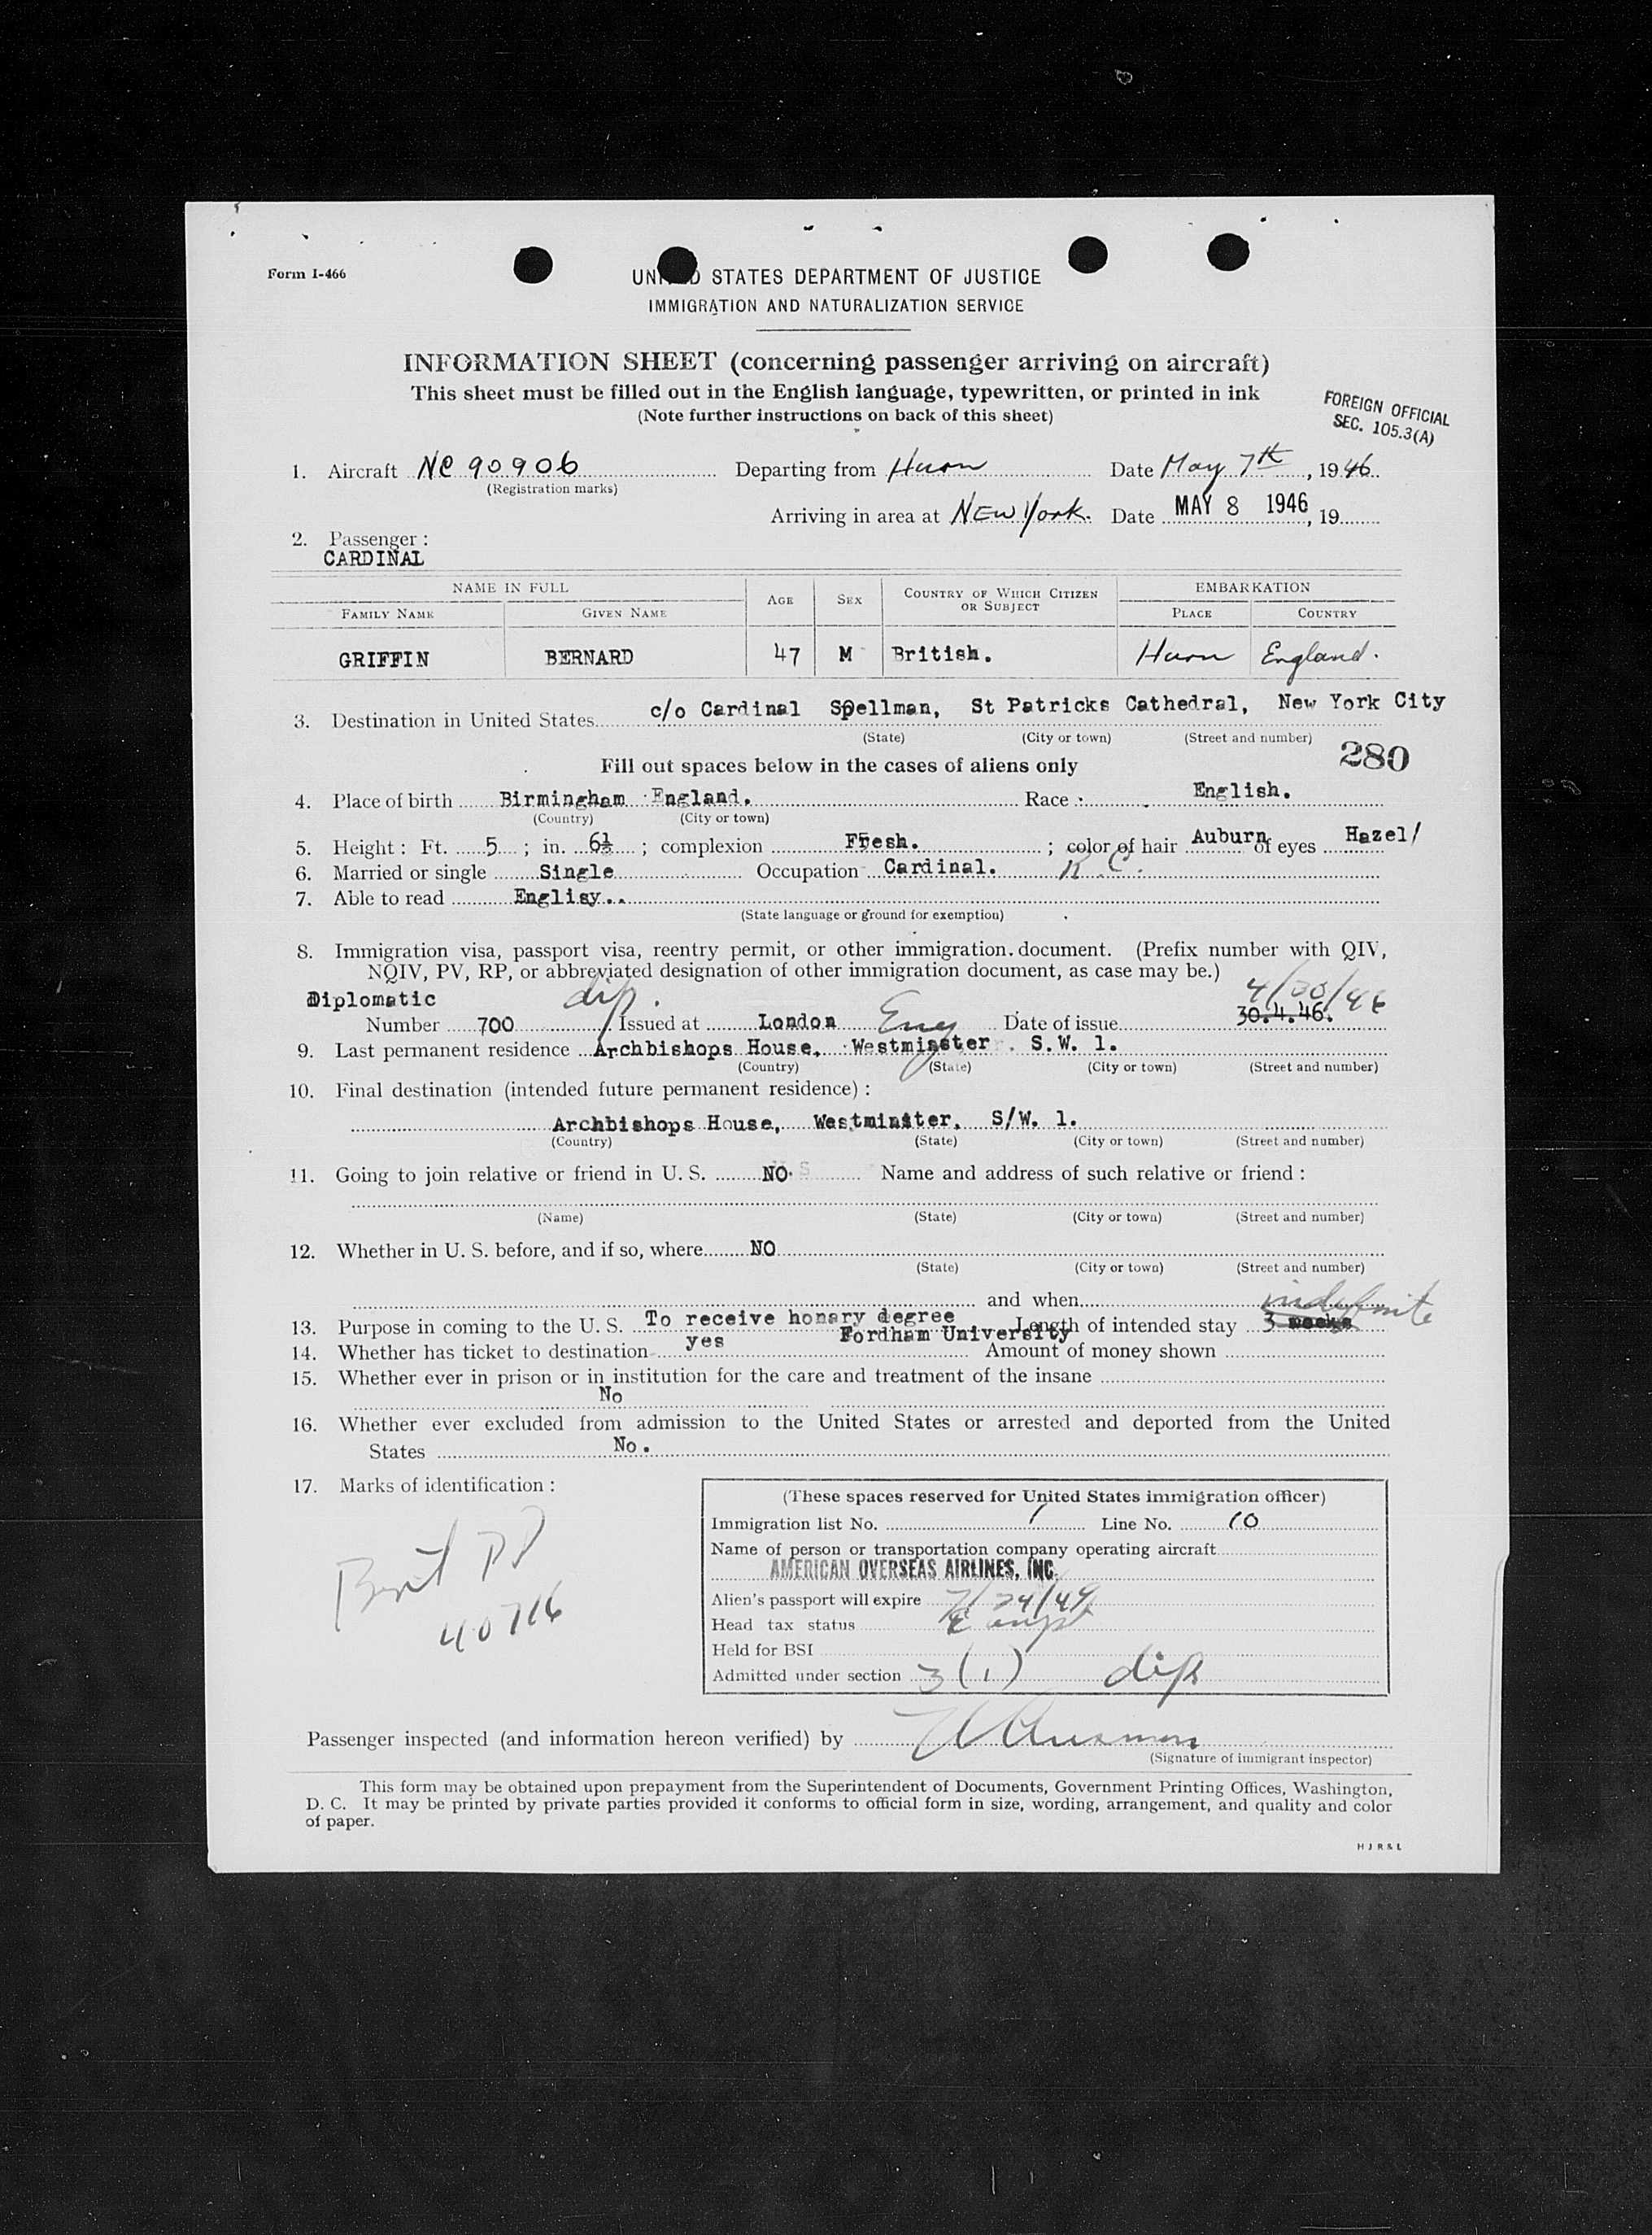 Form I-466
UNITED STATES DEPARTMENT OF JUSTICE
IMMIGRATION AND NATURALIZATION SERVICE
INFORMATION SHEET (concerning passenger arriving on aircraft)
This sheet must be filled out in the English language, typewritten, or printed in ink
(Note further instructions on back of this sheet)
FOREIGN OFFICIAL
SEC. 105.3(A)
1. Aircraft NC 90906 Departing from Hurn Date May 7th, 1946
(Registration marks)
Arriving in area at NEW York. Date MAY 8 1946, 19
2. Passenger :
CARDINAL
NAME IN FULL AGE SEX COUNTRY OF WHICH CITIZEN OR SUBJECT EMBARKATION
FAMILY NAME GIVEN NAME PLACE COUNTRY
GRIFFIN BERNARD 47 M British. Hurn England.
3. Destination in United States c/o Cardinal Spellman, St Patricks Cathedral, New York City
(State) (City or town) (Street and number)
280
Fill out spaces below in the cases of aliens only
4. Place of birth Birmingham England. Race English.
(Country) (City or town)
5. Height : Ft. 5 ; in. 6½ ; complexion Fresh. ; color of hair Auburn of eyes Hazel/
6. Married or single Single Occupation Cardinal. R.C.
7. Able to read Englisy..
(State language or ground for exemption)
8. Immigration visa, passport visa, reentry permit, or other immigration document. (Prefix number with QIV,
NQIV, PV, RP, or abbreviated designation of other immigration document, as case may be.)
Diplomatic dip. 4/30/46
Number 700 Issued at London Eng Date of issue 30.4.46.
9. Last permanent residence Archbishops House, Westminster S.W. 1.
(Country) (State) (City or town) (Street and number)
10. Final destination (intended future permanent residence) :
Archbishops House, Westminster, S/W. 1.
(Country) (State) (City or town) (Street and number)
11. Going to join relative or friend in U. S. NO Name and address of such relative or friend :
(Name) (State) (City or town) (Street and number)
12. Whether in U. S. before, and if so, where NO
(State) (City or town) (Street and number)
and when indefinite
13. Purpose in coming to the U. S. To receive honary degree Length of intended stay 3 weeks
Fordham University
14. Whether has ticket to destination yes Amount of money shown
15. Whether ever in prison or in institution for the care and treatment of the insane
No
16. Whether ever excluded from admission to the United States or arrested and deported from the United
States No.
17. Marks of identification :
40716
(These spaces reserved for United States immigration officer)
Immigration list No. 1 Line No. 10
Name of person or transportation company operating aircraft
AMERICAN OVERSEAS AIRLINES, INC.
Alien's passport will expire
Head tax status
Held for BSI
Admitted under section 3(1) dip
Passenger inspected (and information hereon verified) by
(Signature of immigrant inspector)
This form may be obtained upon prepayment from the Superintendent of Documents, Government Printing Offices, Washington,
D. C. It may be printed by private parties provided it conforms to official form in size, wording, arrangement, and quality and color
of paper.
H J R & L